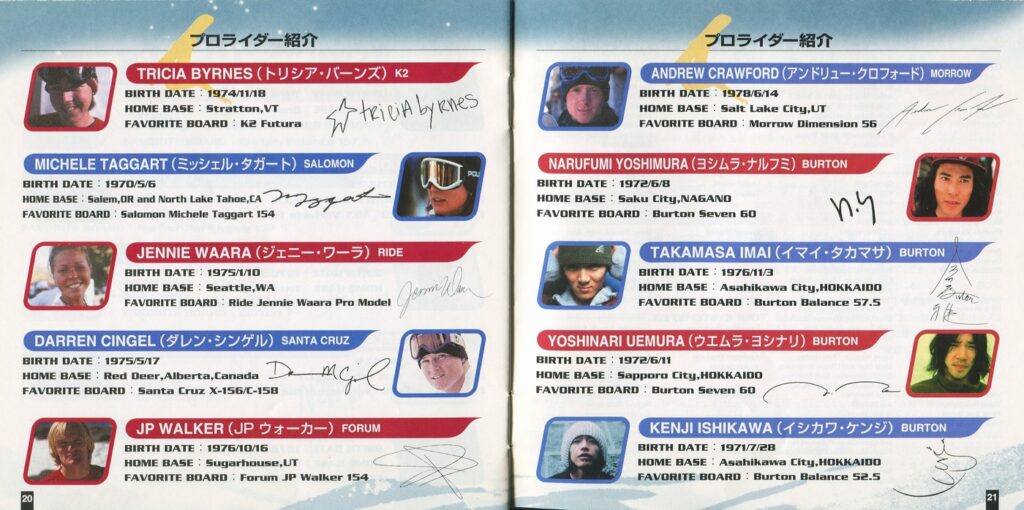 プロライダー紹介
TRICIA BYRNES（トリシア・バーンズ）K2
BIRTH DATE：1974/11/18
HOME BASE：Stratton,VT
FAVORITE BOARD：K2 Futura
triciA byrnes
MICHELE TAGGART（ミッシェル・タガート）SALOMON
BIRTH DATE：1970/5/6
HOME BASE：Salem,OR and North Lake Tahoe,CA
FAVORITE BOARD：Salomon Michele Taggart 154
JENNIE WAARA（ジェニー・ワーラ）RIDE
BIRTH DATE：1975/1/10
HOME BASE：Seattle,WA
FAVORITE BOARD：Ride Jennie Waara Pro Model
DARREN CINGEL（ダレン・シンゲル）SANTA CRUZ
BIRTH DATE：1975/5/17
HOME BASE：Red Deer,Alberta,Canada
FAVORITE BOARD：Santa Cruz X-156/C-158
JP WALKER（JP ウォーカー）FORUM
BIRTH DATE：1976/10/16
HOME BASE：Sugarhouse,UT
FAVORITE BOARD：Forum JP Walker 154
20
プロライダー紹介
ANDREW CRAWFORD（アンドリュー・クロフォード）MORROW
BIRTH DATE：1978/6/14
HOME BASE：Salt Lake City,UT
FAVORITE BOARD：Morrow Dimension 56
NARUFUMI YOSHIMURA（ヨシムラ・ナルフミ）BURTON
BIRTH DATE：1972/6/8
HOME BASE：Saku City,NAGANO
FAVORITE BOARD：Burton Seven 60
n.y
TAKAMASA IMAI（イマイ・タカマサ）BURTON
BIRTH DATE：1976/11/3
HOME BASE：Asahikawa City,HOKKAIDO
FAVORITE BOARD：Burton Balance 57.5
Burton
YOSHINARI UEMURA（ウエムラ・ヨシナリ）BURTON
BIRTH DATE：1972/6/11
HOME BASE：Sapporo City,HOKKAIDO
FAVORITE BOARD：Burton Seven 60
KENJI ISHIKAWA（イシカワ・ケンジ）BURTON
BIRTH DATE：1971/7/28
HOME BASE：Asahikawa City,HOKKAIDO
FAVORITE BOARD：Burton Balance 52.5
21